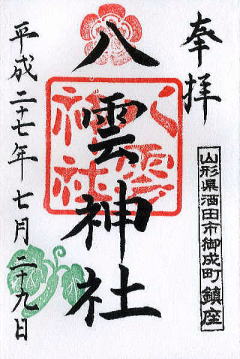 奉拝
山形県酒田市御成町 鎮座
八雲神社
八雲神社
平成二十七年七月二十九日